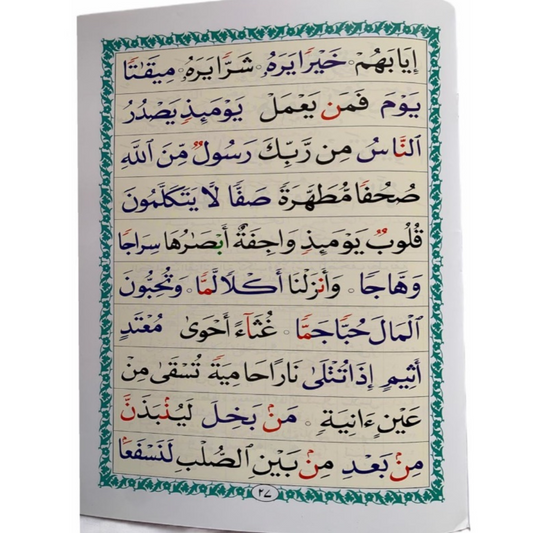 إِيَابَهُمْ ۰ خَيْرًا يَرَهُۥ ۰ شَرًّا يَرَهُۥ ۰ مِيقَٰتًا
يَوْمَ فَمَن يَعْمَلْ يَوْمَئِذٍ يَصْدُرُ
النَّاسُ مِن رَّبِّكَ رَسُولٌ مِّنَ اللَّهِ
صُحُفًا مُّطَهَّرَةً صَفًّا لَّا يَتَكَلَّمُونَ
قُلُوبٌ يَوْمَئِذٍ وَاجِفَةٌ أَبْصَٰرُهَا سِرَاجًا
وَهَّاجًا ۰ وَأَنزَلْنَا أَكْلًا لَّمًّا ۰ وَتُحِبُّونَ
الْمَالَ حُبًّا جَمًّا ۰ غُثَآءً أَحْوَىٰ مُعْتَدٍ
أَثِيمٍ إِذَا تُتْلَىٰ نَارًا حَامِيَةً تُسْقَىٰ مِنْ
عَيْنٍ ءَانِيَةٍ ۰ مَنۢ بَخِلَ لَيُنۢبَذَنَّ
مِنۢ بَعْدِ مِنۢ بَيْنِ الصُّلْبِ لَنَسْفَعًۢا
٢٧